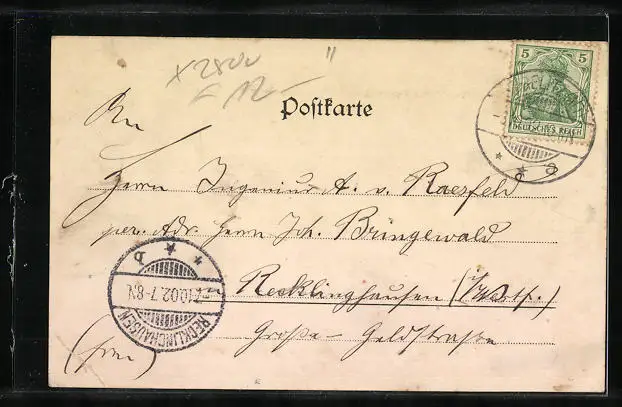 x2800 "
F 12.-
5 5
DEUTSCHES REICH
Postkarte
An
Herrn Ingenieur A. v. Raesfeld
per. Adr. Herrn Joh. Bringewald
Recklinghausen (Westf.)
Große-Geldstraße
(frei)
b
10.02. 7-8N.
RECKLINGHAUSEN